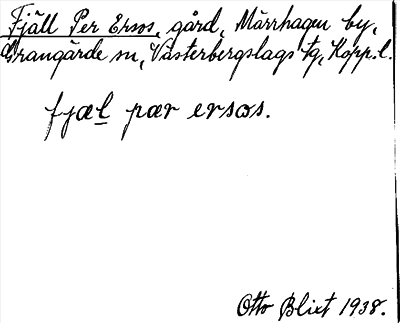 Fjäll Per Ersos, gård, Mårrhagen by,
Grangärde sn, Västerbergslags tg, Kopp. l.
fjæl pær ersos.
Otto Blixt 1938.